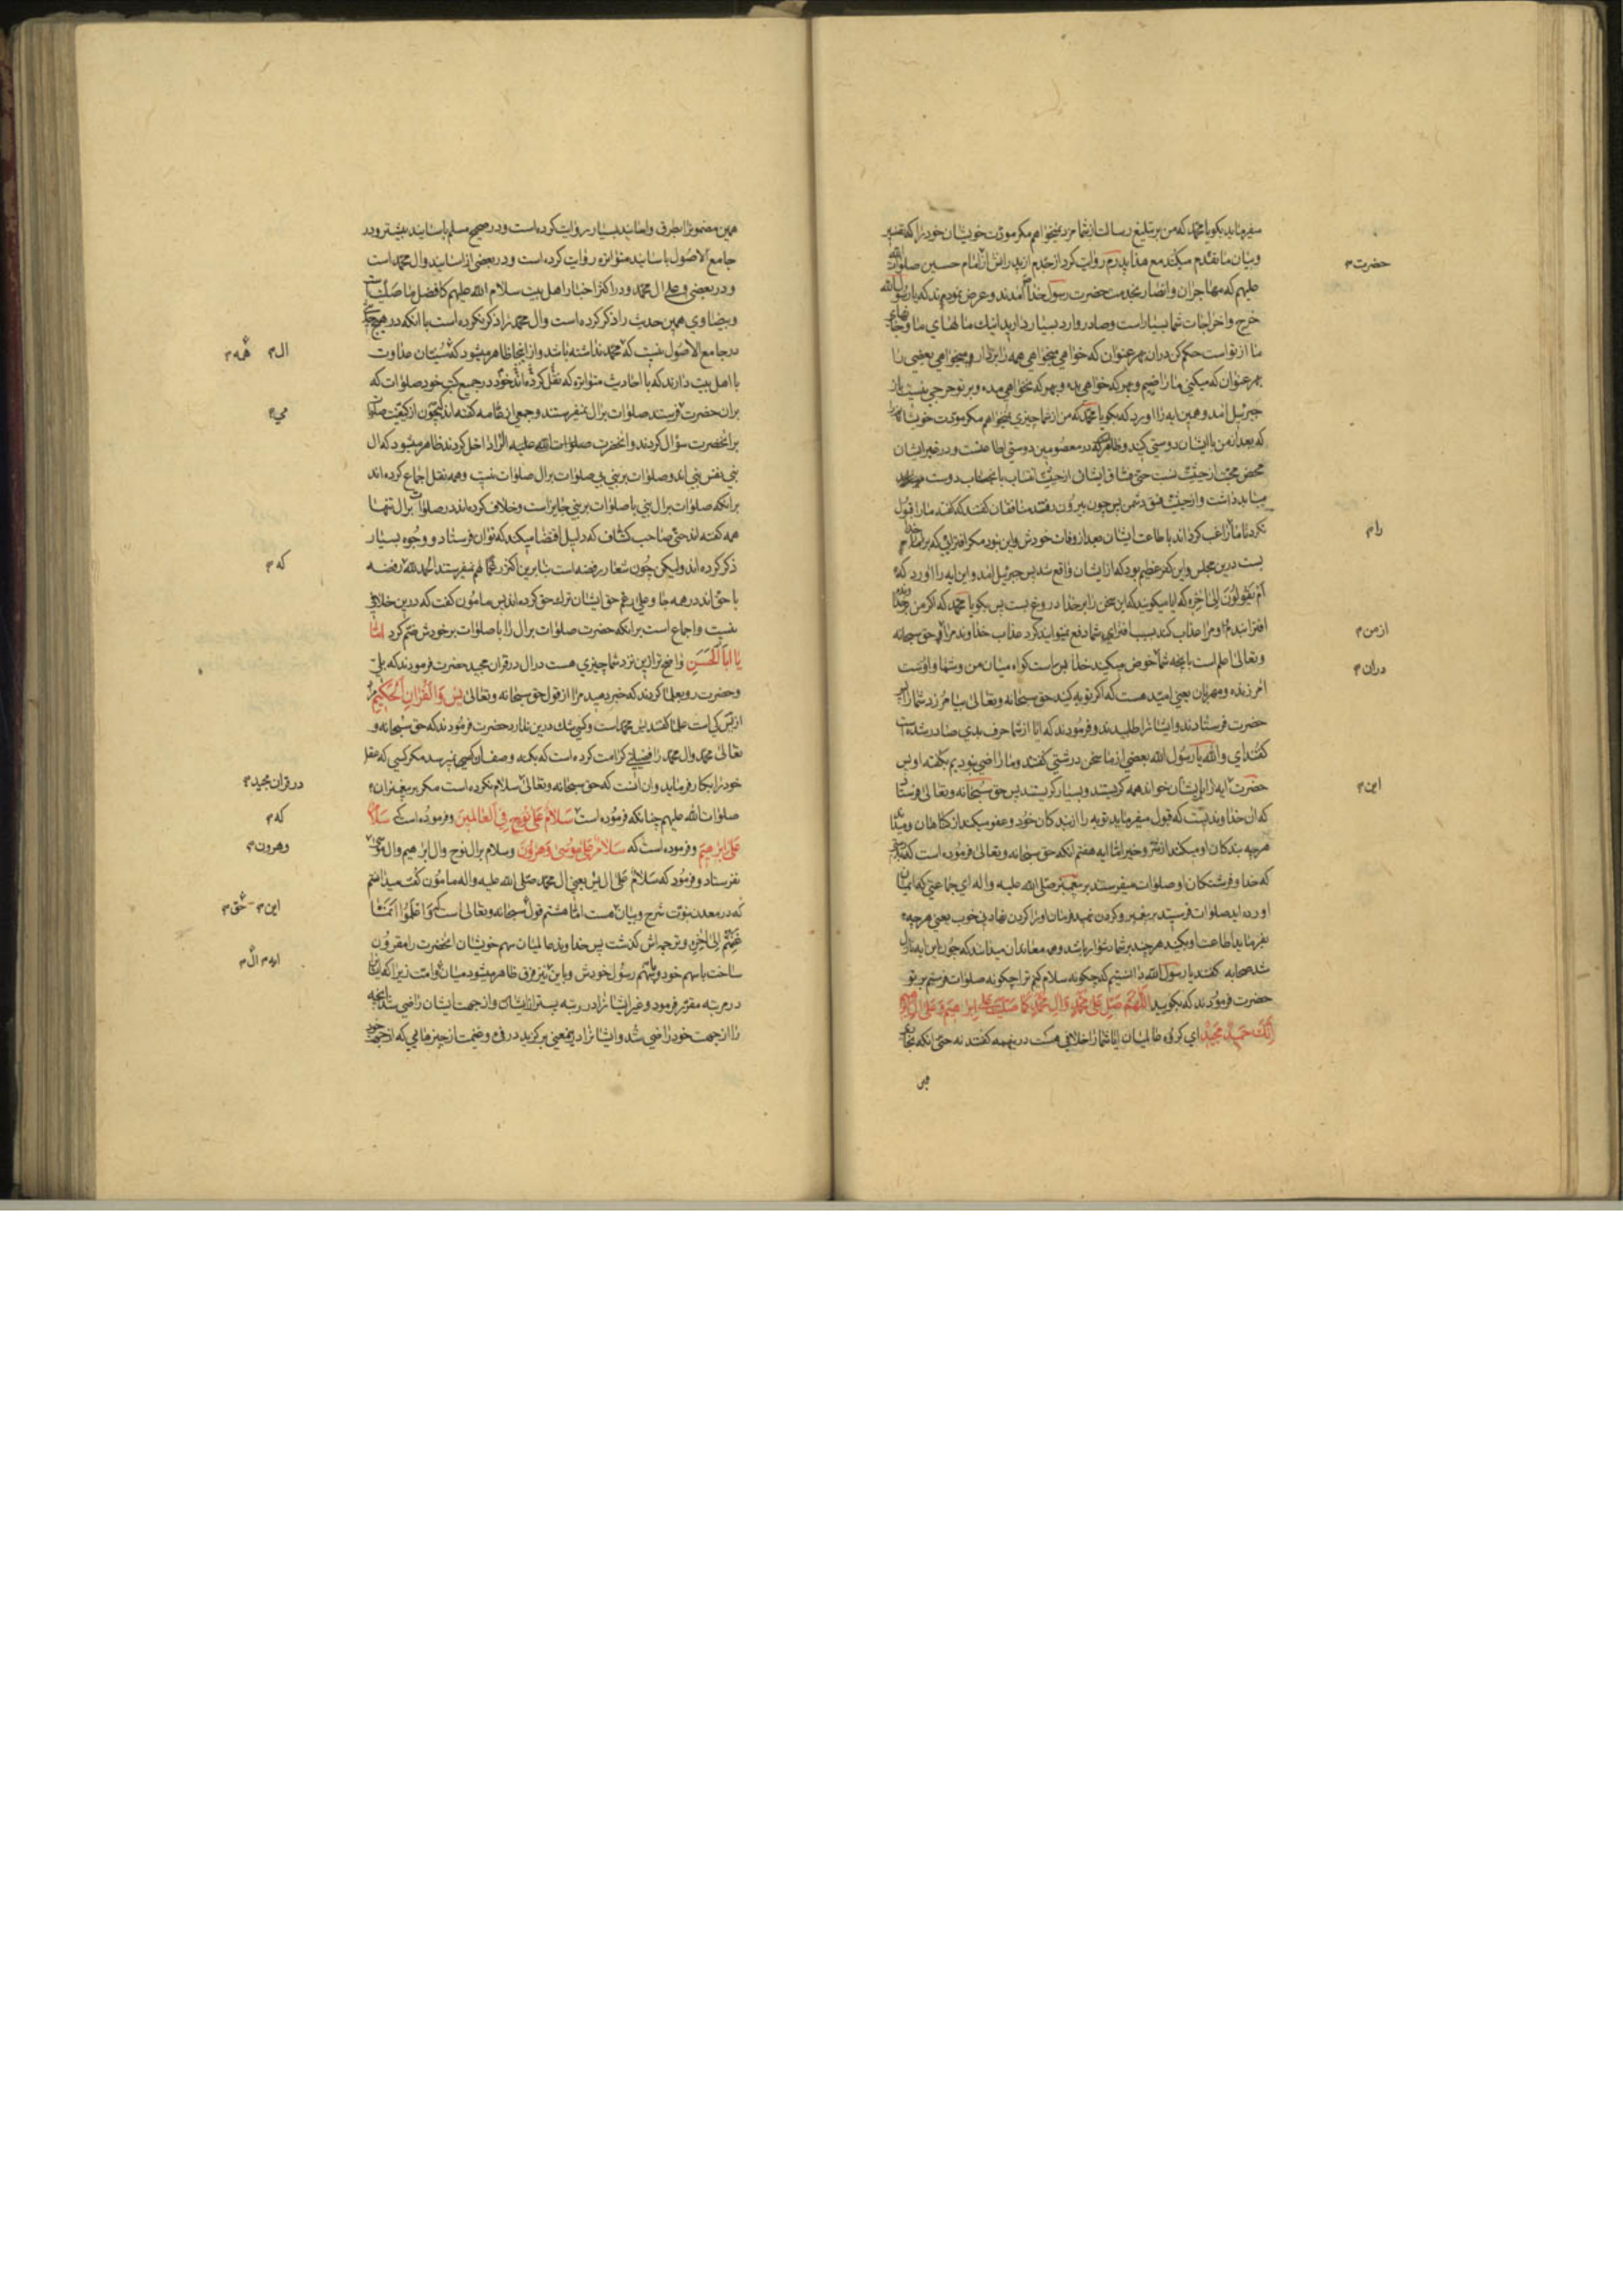 میفرماید بکو یا محمد که من بر تبلیغ رسالت از شما مزد نمیخواهم مکر مودت خویشان خود را که تفسیر
و بیان ما تقدم میکند مع هذا پدرم روایت کرد از جدم از پدرانش از امام حسین صلوات الله
علیهم که مهاجران و انصار بخدمت حضرت رسول خدا آمدند و عرض نمودند که یا رسول الله
خرج و اخراجات شما بسیار است و صادر و وارد بسیار دارید اینک مالهای ما و جانهای
ما از تواست حکم کن دران بهر عنوان که خواهی میخواهی همه را بردار و میخواهی بعضی را
بهر عنوان که میکنی ما راضییم و بهر که خواهی بده و بهر که نخواهی مده و بر تو حرجی نیست پس
جبرئیل امد و همین ایه را اورد که بکو یا محمد که من از شما چیزی نمیخواهم مکر مودت خویشان
که بعد از من با ایشان دوستی کنید و ظاهرا که در معصومین دوستی اطاعتست و در غیر ایشان
محض محبت از حیثیت نسبت حتی فساق ایشان از حیثیت انتساب بانجناب دوست
میباید داشت و از حیثیت فسق دشمن پس چون بیرون رفتند منافقان گفتند که گفته ما را قبول
نکرد تا ما را راغب کرداند باطاعت ایشان بعد از وفات خودش و این نبود مکر افترائی که بر خدا
بست درین مجلس و این کفر عظیم بود که از ایشان واقع شد پس جبرئیل امد و این ایه را اورد که
ام یقولون الی اخره که ایا میکویند که این سخن را بر خدا دروغ بست پس بکو یا محمد که اکر من بر خدا
افترا بندم و مرا عذاب کند بسبب افترای شما دفع نمیتوانید کرد عذاب خداوند مرا و حق سبحانه
و تعالی اعلم است بانچه شما خوض میکنید خدا بس است کواه میان من و شما و اوست
امرزنده و مهربان یعنی امید هست که اکر توبه کنید حق سبحانه و تعالی بیامرزد شما را پس
حضرت فرستادند و ایشانرا طلبیدند و فرمودند که ایا از شما حرف بدی صادر شده است
کفتند ای والله یا رسول الله بعضی از ما سخن درشتی کفتند و ما راضی نبودیم بکفته او پس
حضرت ایه را بر ایشان خواند همه کریستند و بسیار کریستند پس حق سبحانه و تعالی فرستاد
که ان خداوندیست که قبول میفرماید توبه را از بندکان خود و عفو میکند از کناهان و میداند
هرچه بندکان او میکنند از شر و خیر اما ایه هفتم انکه حق سبحانه و تعالی فرموده است که
که خدا و فرشتکان او صلوات میفرستند بر پیغمبر صلی الله علیه و اله ای جماعتی که ایمان
اورده اید صلوات فرستید بر پیغمبر و کردن نهید فرمان او را کردن نهادنی خوب یعنی هرچه
بفرماید اطاعت او بکنید هر چند بر شما دشوار باشد و همه معاندان میدانند که چون این ایه نازل
شد صحابه کفتند یا رسول الله دانستیم که چکونه سلام کنیم ترا چکونه صلوات فرستیم بر تو
حضرت فرمودند که بکویید اللهم صل علی محمد و ال محمد کما صلیت علی ابراهیم و علی ال ابراهیم
انک حمید مجید ای کروه عالمیان ایا شما را خلافی هست درین همه کفتند نه حتی انکه بخاری
حضرت م
را م
از من م
دران م
این م
همین مضمونرا بطرق و اسانید بسیار روایت کرده است و در صحیح مسلم باسانید بیشتر و در
جامع الاصول باسانید متواتره روایت کرده است و در بعضی از اسانید و ال محمد است
و در بعضی و علی ال محمد و در اکثر اخبار اهل بیت سلام الله علیهم کافضل ما صلیت است
و بیضاوی همین حدیث را ذکر کرده است و ال محمد را ذکر نکرده است با انکه در هیچ جای
در جامع الاصول نیست که محمد نداشته باشد و از اینجا ظاهر میشود که سنیان عداوت
با اهل بیت دارند که با احادیث متواتره که نقل کرده اند خود در جمیع کتب خود صلوات که
بران حضرت فرستند صلوات بر ال نمیفرستند و جمعی از عامه کفته اند که چون از کیفیت صلوات
بر انحضرت سؤال کردند و انحضرت صلوات الله علیه ال را داخل کردند ظاهر میشود که ال
نبی نفس نبی اند و صلوات بر نبی بی صلوات بر ال صلوات نیست و همه نقل اجماع کرده اند
بر انکه صلوات بر ال نبی با صلوات بر نبی جایز است و خلاف کرده اند در صلوات بر ال تنها
همه کفته اند حتی صاحب کشاف که دلیل اقتضا میکند که توان فرستاد و وجوه بسیار
ذکر کرده اند ولیکن چون شعار رفضه است بنابرین اکثر علما هم نمیفرستند الحمد لله رفضه
با حق اند در همه جا و علی رغم حق ایشان ترک حق کرده اند پس مامون کفت که درین خلافی
نیست و اجماع است بر انکه حضرت صلوات بر ال را با صلوات بر خودش ضم کرد اما
یا ابا الحسن واضح تر ازین نزد شما چیزی هست در ال در قران مجید حضرت فرمودند که بلی
و حضرت رو بعلما کردند که خبر دهید مرا از قول حق سبحانه و تعالی یس والقران الحکیم مراد
از یس کی است علما کفتند یس محمد است و کسی شک درین ندارد حضرت فرمودند که حق سبحانه و
تعالی محمد و ال محمد را فضیلتی کرامت کرده است که بکنه وصف ان کسی نمیرسد مکر کسی که عقل
خود را بکار فرماید و ان انست که حق سبحانه و تعالی سلام نکرده است مکر بر پیغمبران
صلوات الله علیهم چنانکه فرموده است سلام علی نوح فی العالمین و فرموده است که سلام
علی ابرهیم و فرموده است که سلام علی موسی و هرون و سلام بر ال نوح و ال ابرهیم و ال موسی
نفرستاد و فرمود که سلام علی ال یس یعنی ال محمد صلی الله علیه و اله مامون کفت میدانستم
که در معدن نبوت شرح و بیان هست اما هشتم قول سبحانه و تعالی است که واعلموا انما
غنمتم الی اخره و ترجمه اش کذشت پس خداوند عالمیان سهم خویشان انحضرت را مقرون
ساخت باسهم خود و باسهم رسول خودش و باین نیز فرق ظاهر میشود میان و امت زیرا که ایشان
در مرتبه مقرر فرمود و غیر ایشانرا در رتبه پست تر از ایشان و از جهت ایشان راضی شد بانچه
را از جهت خود راضی شد و ایشانرا درین معنی برکزید در فیء و غنیمت از چیزهایی که از جهت خود
ال م همه م
می م
که م
در قران مجید م
که م
وهرون م
این م حق م
ال م